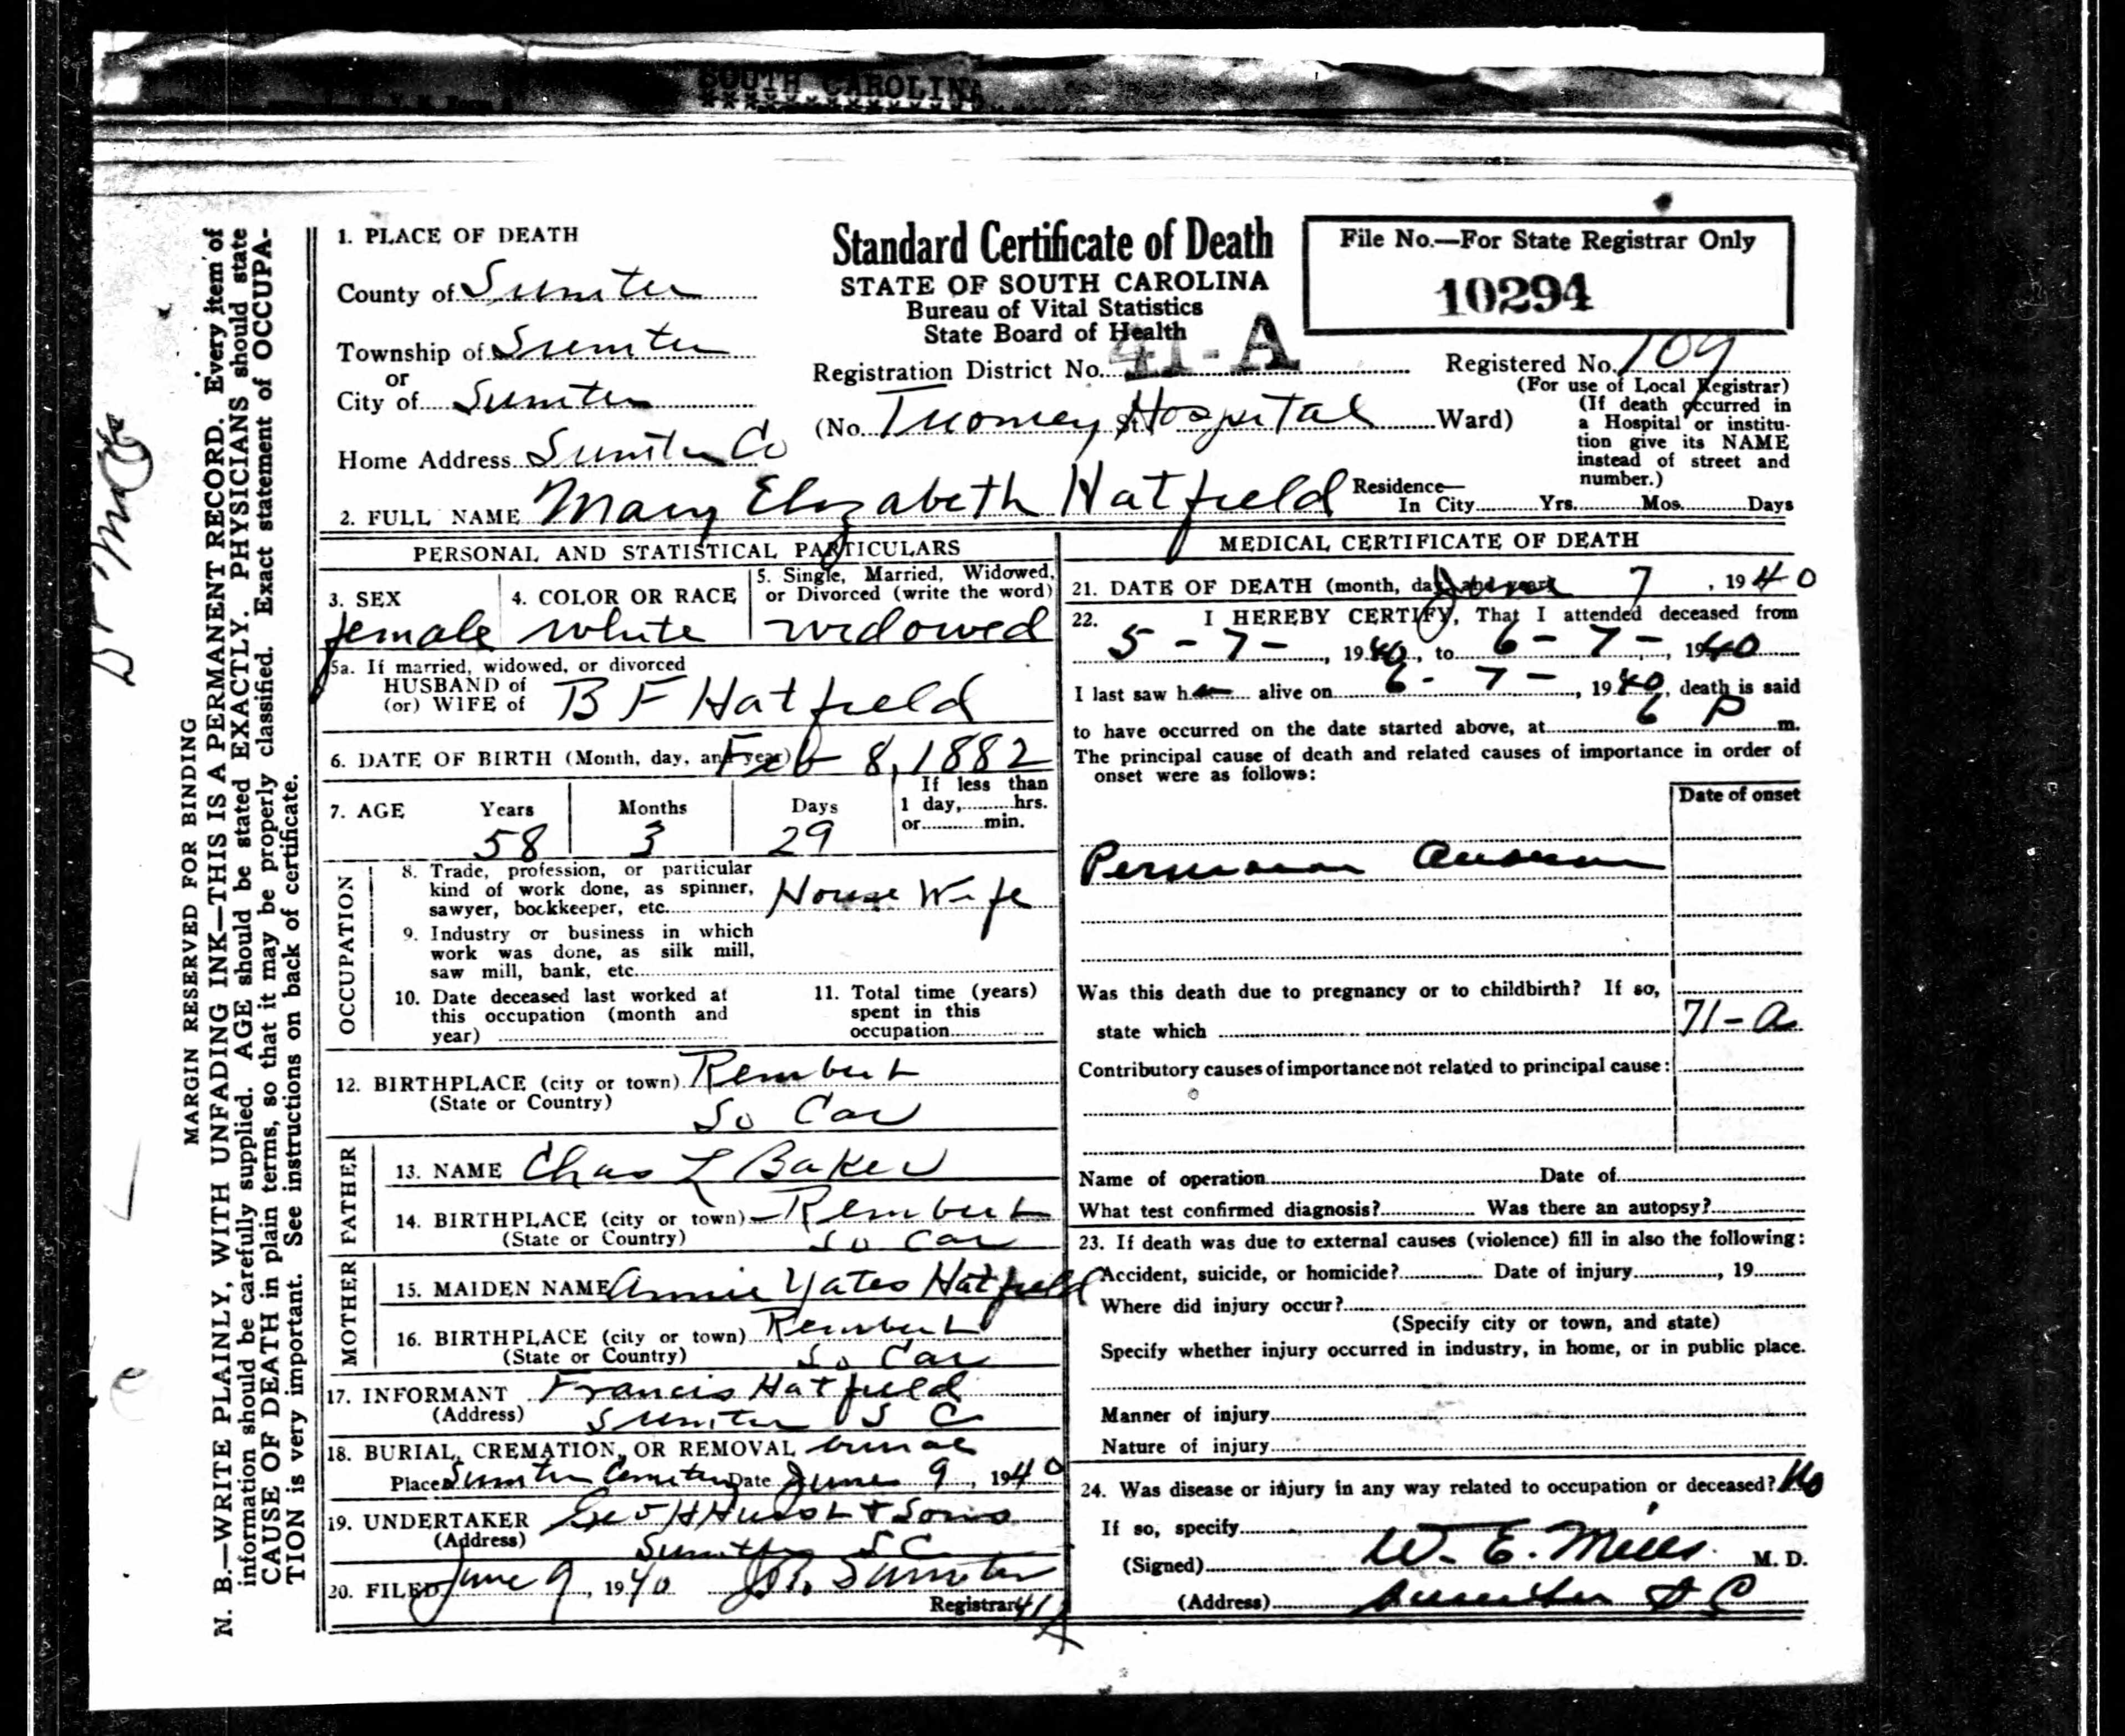 SOUTH CAROLINA
MARGIN RESERVED FOR BINDING
N. B.—WRITE PLAINLY, WITH UNFADING INK—THIS IS A PERMANENT RECORD. Every item of
information should be carefully supplied. AGE should be stated EXACTLY. PHYSICIANS should state
CAUSE OF DEATH in plain terms, so that it may be properly classified. Exact statement of OCCUPA-
TION is very important. See instructions on back of certificate.
Standard Certificate of Death
STATE OF SOUTH CAROLINA
Bureau of Vital Statistics
State Board of Health
Registration District No. 41-A
File No.—For State Registrar Only
10294
Registered No. 109
(For use of Local Registrar)
(If death occurred in
a Hospital or institu-
tion give its NAME
instead of street and
number.)
1. PLACE OF DEATH
County of Sumter
Township of Sumter
or
City of Sumter
(No. Tuomey Hospital St. Ward)
Home Address Sumter Co
2. FULL NAME Mary Elizabeth Hatfield
Residence—
In City Yrs. Mos. Days
PERSONAL AND STATISTICAL PARTICULARS
3. SEX
female
4. COLOR OR RACE
white
5. Single, Married, Widowed,
or Divorced (write the word)
widowed
5a. If married, widowed, or divorced
HUSBAND of
(or) WIFE of B F Hatfield
6. DATE OF BIRTH (Month, day, and year) Feb 8, 1882
7. AGE Years Months Days
58 3 29
If less than
1 day, hrs.
or min.
OCCUPATION
8. Trade, profession, or particular
kind of work done, as spinner,
sawyer, bookkeeper, etc. House Wife
9. Industry or business in which
work was done, as silk mill,
saw mill, bank, etc.
10. Date deceased last worked at
this occupation (month and
year)
11. Total time (years)
spent in this
occupation
12. BIRTHPLACE (city or town) Rembert
(State or Country) So Car
FATHER
13. NAME Chas L Baker
14. BIRTHPLACE (city or town) Rembert
(State or Country) So Car
MOTHER
15. MAIDEN NAME Annie Yates Hatfield
16. BIRTHPLACE (city or town) Rembert
(State or Country) So Car
17. INFORMANT Francis Hatfield
(Address) Sumter S C
18. BURIAL, CREMATION, OR REMOVAL burial
Place Sumter Cemetery Date June 9, 1940
19. UNDERTAKER Geo H Hurst & Sons
(Address) Sumter S C
20. FILED June 9, 1940
Registrar 41A
MEDICAL CERTIFICATE OF DEATH
21. DATE OF DEATH (month, day and year) June 7, 1940
22. I HEREBY CERTIFY, That I attended deceased from
5-7-, 1940, to 6-7-, 1940
I last saw her alive on 6-7-, 1940, death is said
to have occurred on the date started above, at 6 P m.
The principal cause of death and related causes of importance in order of
onset were as follows:
Date of onset
Pernicious Anemia
Was this death due to pregnancy or to childbirth? If so,
state which
71-a
Contributory causes of importance not related to principal cause:
Name of operation Date of
What test confirmed diagnosis? Was there an autopsy?
23. If death was due to external causes (violence) fill in also the following:
Accident, suicide, or homicide? Date of injury, 19
Where did injury occur?
(Specify city or town, and state)
Specify whether injury occurred in industry, in home, or in public place.
Manner of injury
Nature of injury
24. Was disease or injury in any way related to occupation or deceased? No
If so, specify
(Signed) W. E. Mills M. D.
(Address) Sumter S C